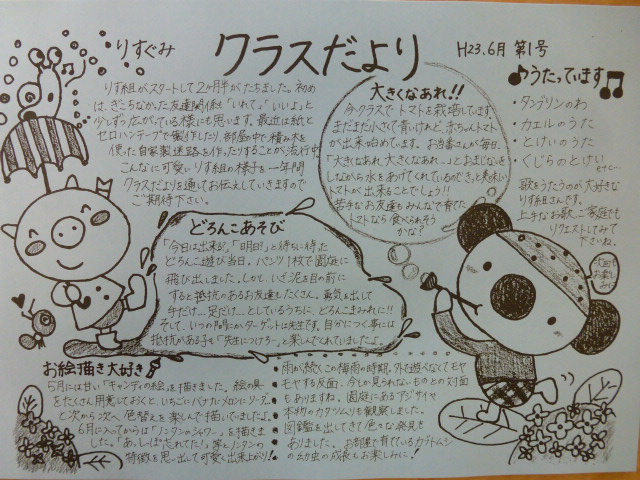 りすぐみ
クラスだより
H23.6月 第1号
りす組がスタートして2ヶ月半がたちました。初め
は、ぎこちなかった友達関係も「いれて」「いいよ」と
少しずつ広がっている様にも思います。最近は紙と
セロハンテープで製作したり、部屋中で積み木を
使った自家製迷路を作ったりすることが流行中
こんなに可愛いりす組の様子を一年間
クラスだよりを通してお伝えしていきますので
ご期待下さい。
大きくなあれ!!
今クラスでトマトを栽培しています。
まだまだ小さくて青いけれど、赤ちゃんトマト
が出来始めています。お当番さんが毎日、
「大きくなあれ、大きくなあれ…」とおまじないを
しながら水をあげてくれているのできっと美味しい
トマトが出来ることでしょう!!
苦手なお友達もみんなで育てた
トマトなら食べられそう
かな?
うたっています
・タンブリンのわ
・カエルのうた
・とけいのうた
・くじらのとけい
歌をうたうのが大好きな
りす組さんです。
上手なお歌、ご家庭でも
リクエストしてみて
下さいね。
次回も
お楽しみ
どろんこあそび
「今日は出来る?」「明日?」と待ちに待った
どろんこ遊び当日。パンツ1枚で園庭に
飛び出しました。しかし、いざ泥を目の前に
すると抵抗のあるお友達もたくさん。勇気を出して
手だけ…足だけ…としているうちに、どろんこまみれに!!
そして、いつの間にかターゲットは先生です。自分につく事には
抵抗がある子も「先生につけろ〜」と楽しんでくれていましたよ。
お絵描き大好き!
5月には甘い「キャンディの絵」を描きました。絵の具
をたくさん用意しておくと、いちごにバナナ・メロンにソーダ…
と次から次へ色替えを楽しんで描いていましたよ。
6月に入ってからは「ノンタンのシャワー」を描きま
した。「あ、しっぽたれてた!」等とノンタンの
特徴を思い出して可愛く出来上がり!
雨が続くこの梅雨の時期、外で遊べなくてモヤ
モヤする反面、今しか見られないものとの対面
もありますね。園庭にあるアジサイや
本物のカタツムリも観察しました。
図鑑を出してきて色々な発見も
ありました。お部屋で育てているカブトムシ
の幼虫の成長もお楽しみに!